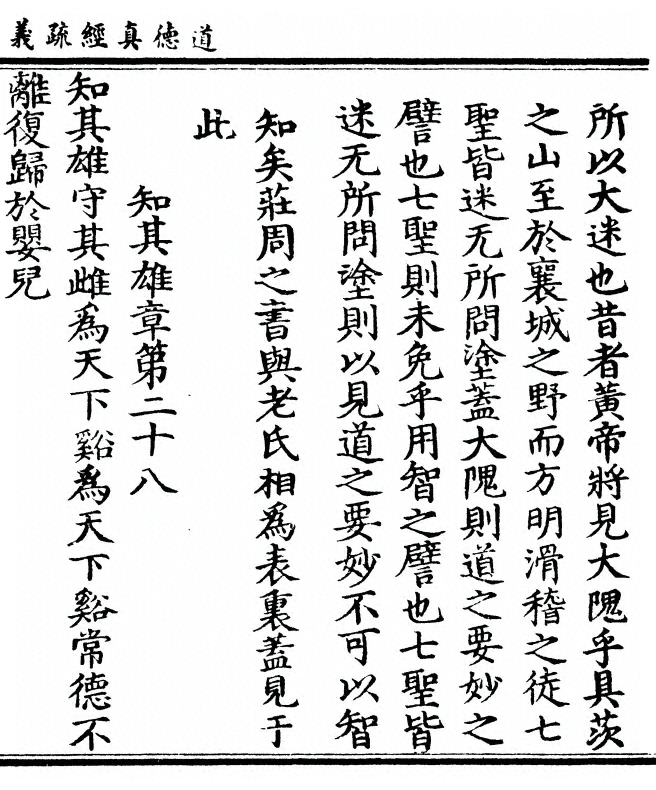 道德真經疏義
所以大迷也昔者黃帝將見大隗乎具茨
之山至於襄城之野而方明滑稽之徒七
聖皆迷无所問塗蓋大隗則道之要妙之
譬也七聖則未免乎用智之譬也七聖皆
迷无所問塗則以見道之要妙不可以智
知矣莊周之書與老氏相為表裏蓋見于
此
知其雄章第二十八
知其雄守其雌為天下谿為天下谿常德不
離復歸於嬰兒